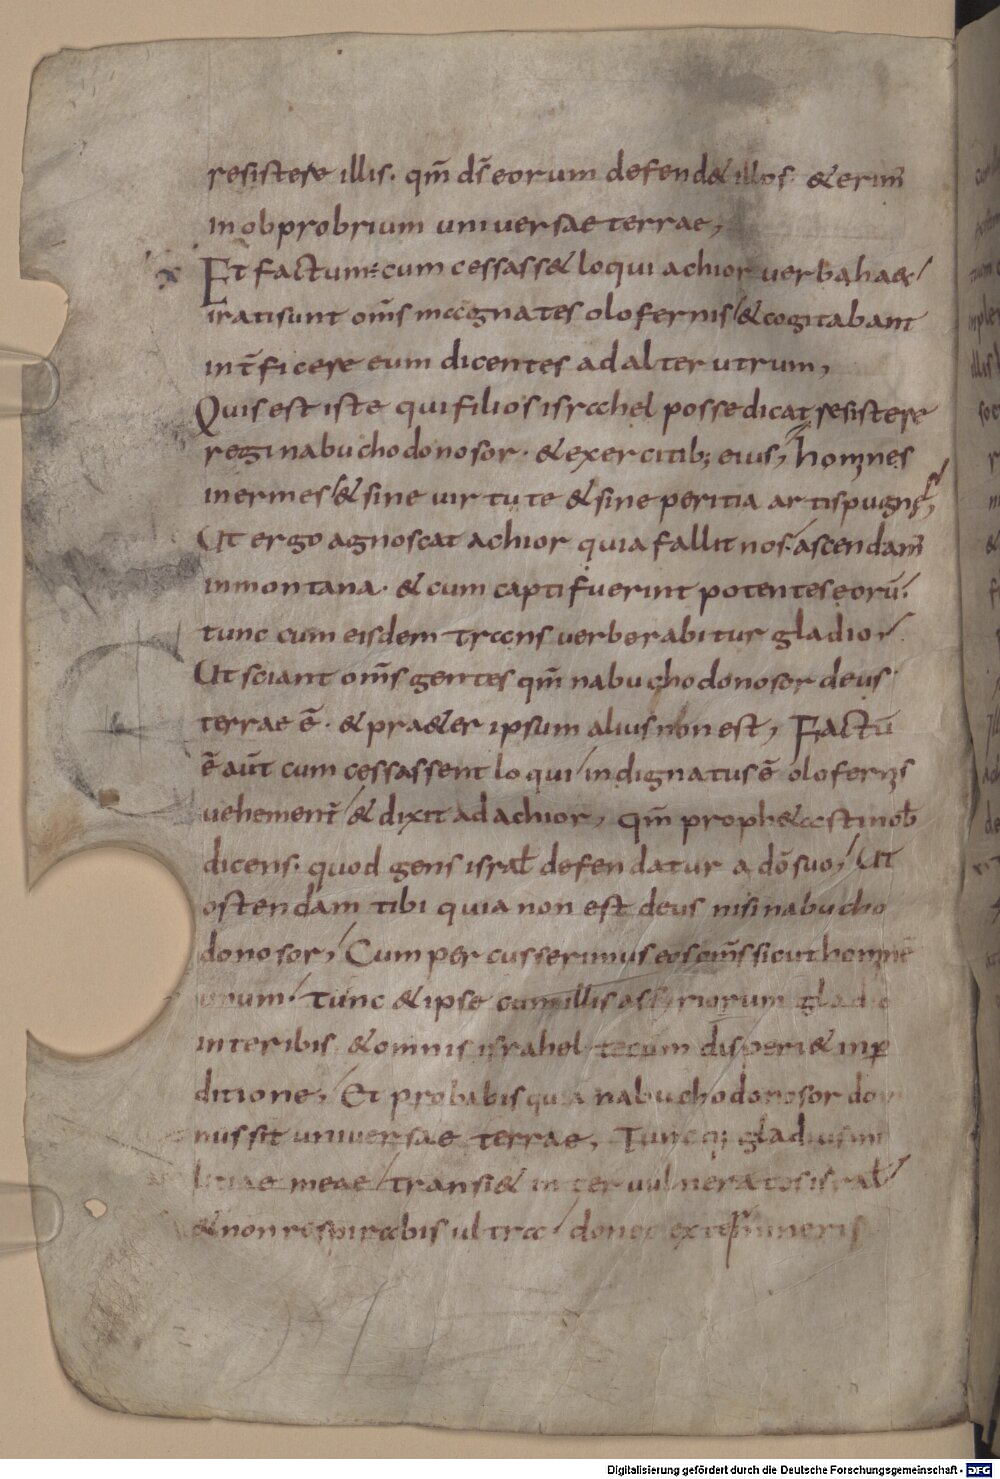 resistere illis. qm̄ ds̄ eorum defend& illos. & erim̄
in obprobrium universae terrae,
x Et factum: cum cessass& loqui achior verba haec/
irati sunt om̄s mcognates olofernis/ & cogitabant
int̄ficere eum dicentes ad alterutrum,
Quis est iste qui filios isrcchel posse dicat resistere
regi nabuchodonosor. & exercitib; eius, homnes
inermes/ & sine virtute & sine peritia artis pugne,
Ut ergo agnoscat achior quia fallit nos. ascendam̄
in montana. & cum capti fuerint potentes eorū.
tunc cum eisdem trccns verberabitur gladio,
Ut sciant om̄s gentes qm̄ nabuchodonosor deus
terrae ē. & pra&er ipsum alius non est, Factū
ē aūt cum cessassent loqui/ indignatus ē olofernis
vehement̄/ & dixit ad achior, qm̄ proph&ccsti nob̄
dicens. quod gens israł defendatur a dō suo, Ut
ostendam tibi quia non est deus nisi nabucho
donosor, Cum percusserimus eos om̄s sicut homnē
unum. tunc & ipse cum illis assyriorum gladio
interibis & omnis israhel tecum disperi& in p
ditione, Et probabis quia nabuchodonosor do
nus sit universae terrae, Tuncq; gladius mi
litiae meae/ transi& inter vulneratos israł
& non respirccbis ultrcc/ donec extermineris
Digitalisierung gefördert durch die Deutsche Forschungsgemeinschaft - DFG